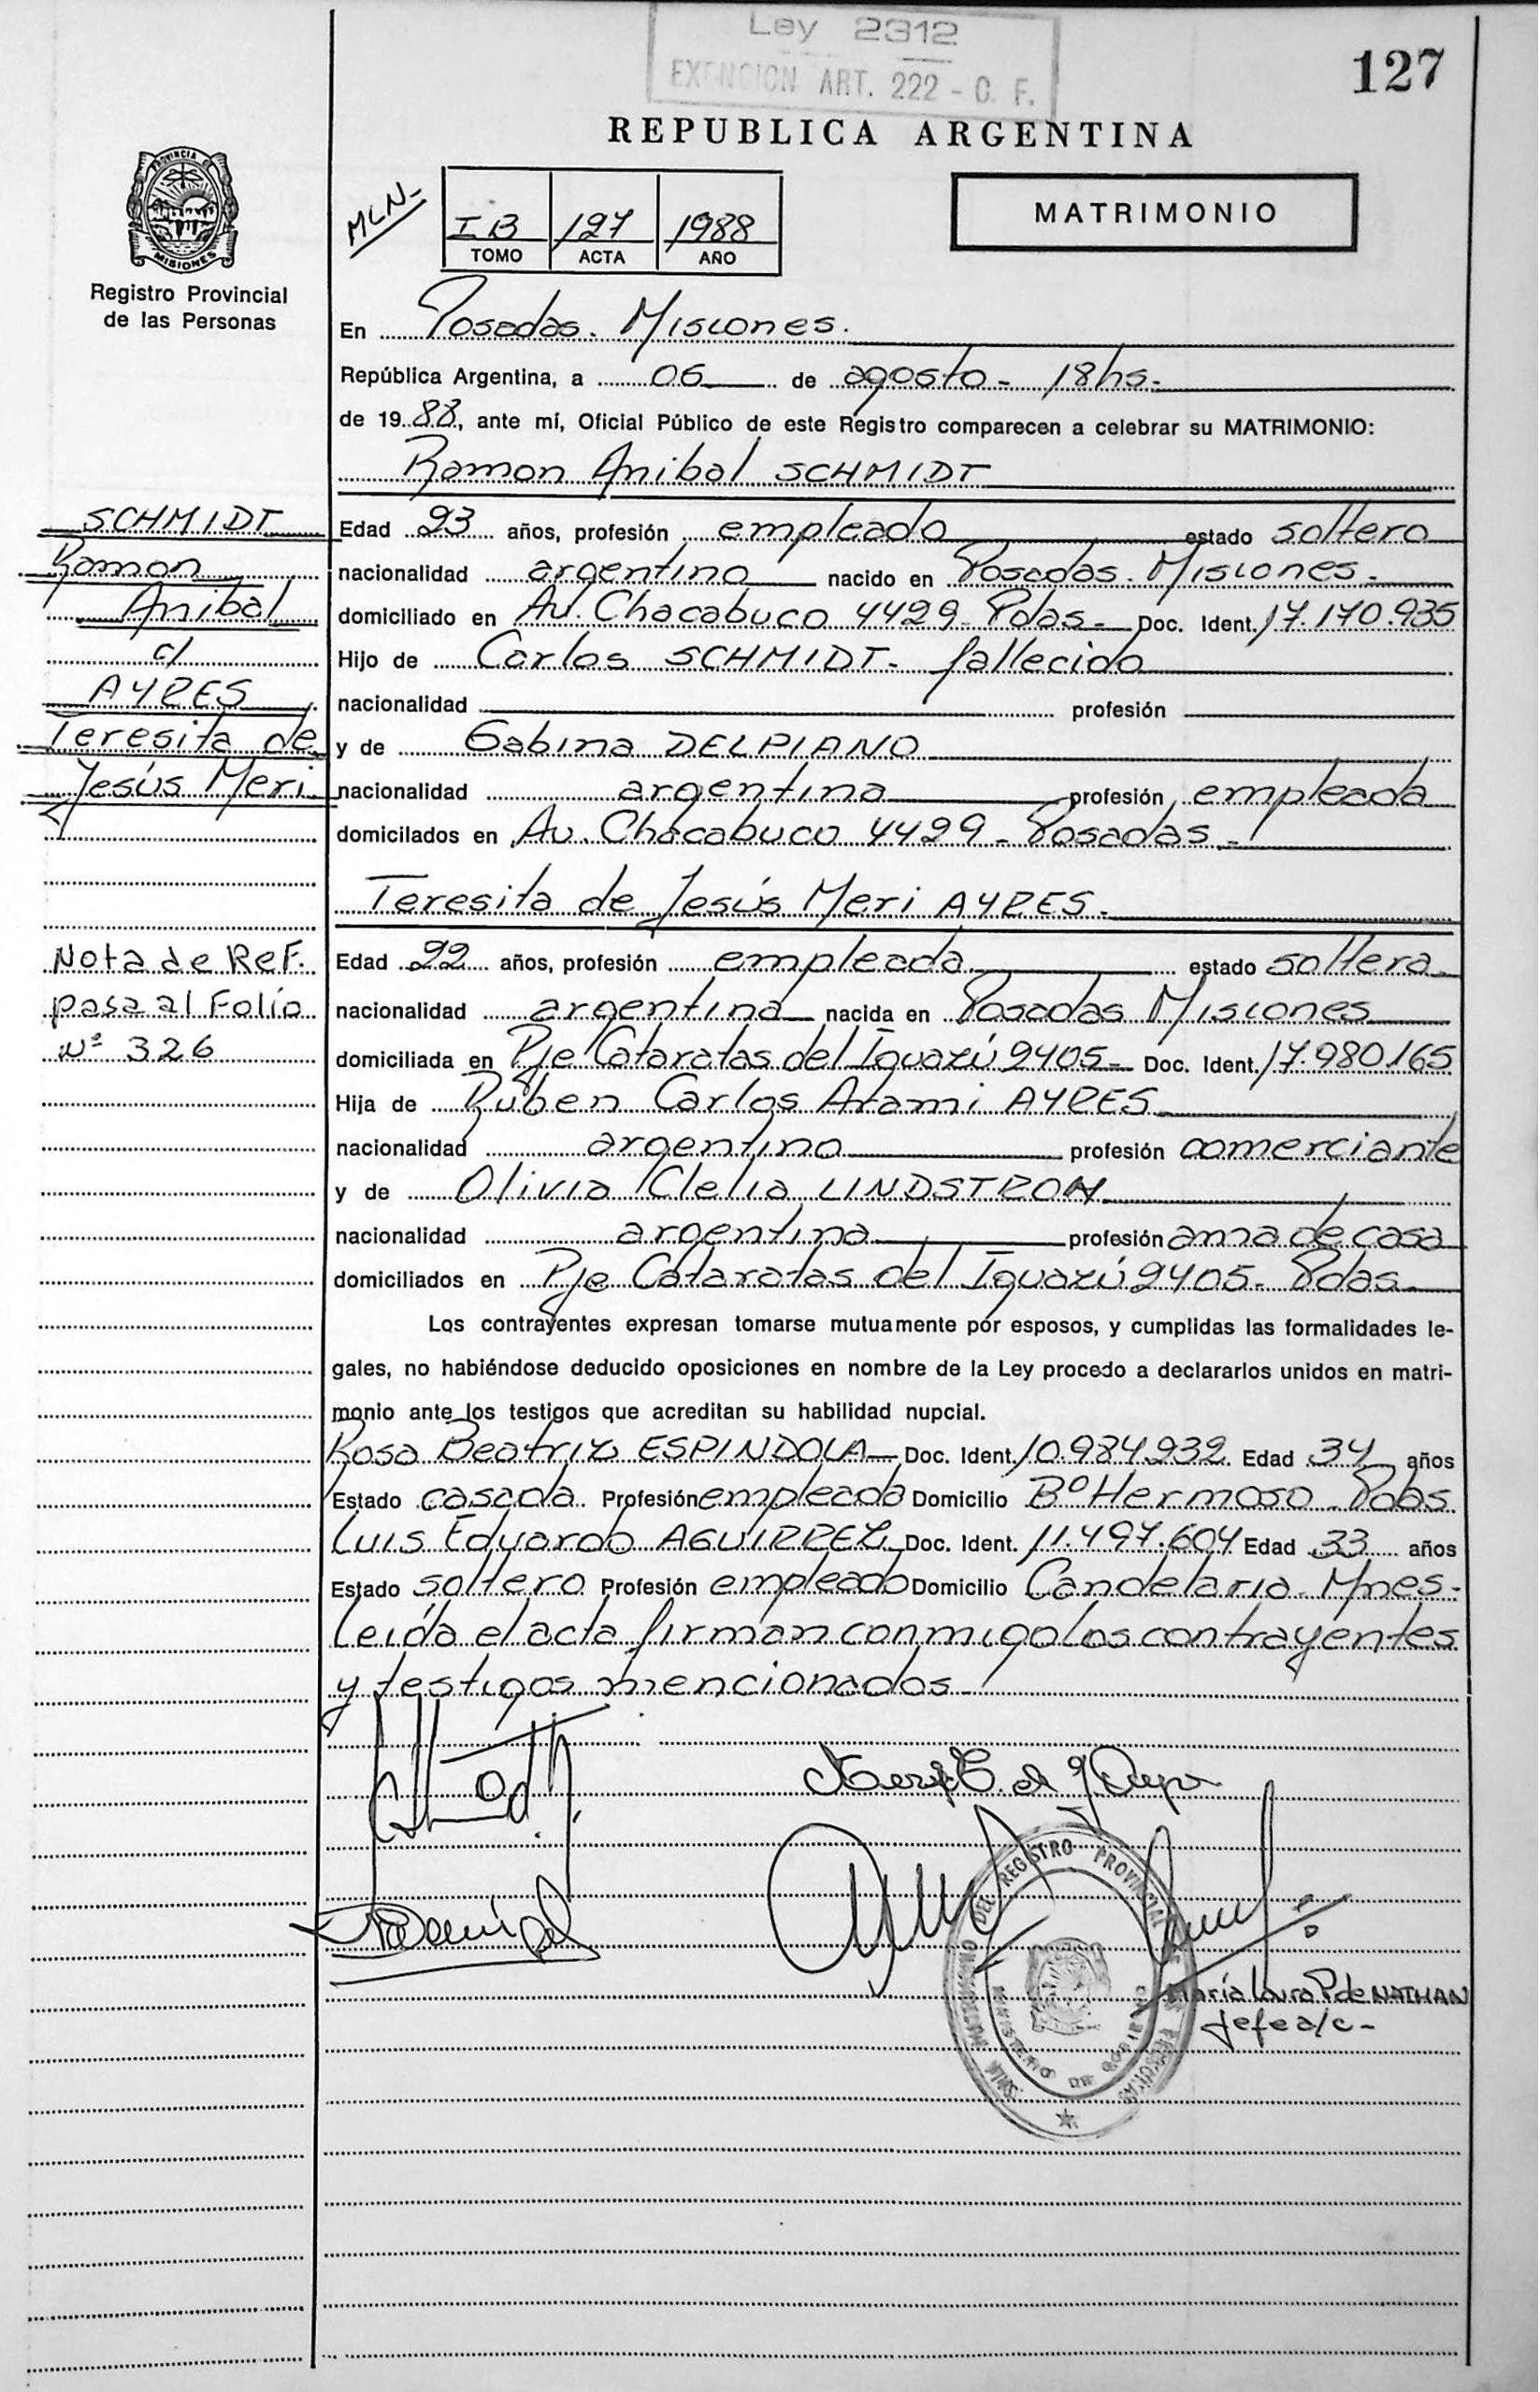 Ley 2312
EXENCION ART. 222 - C. F.
127
REPUBLICA ARGENTINA
PROVINCIA DE
MISIONES
Registro Provincial
de las Personas
MLN-
I B 127 1988
TOMO ACTA AÑO
MATRIMONIO
En Posadas. Misiones.
República Argentina, a 06 de agosto - 18hs-
de 19 88, ante mí, Oficial Público de este Registro comparecen a celebrar su MATRIMONIO:
Ramon Anibal SCHMIDT
SCHMIDT
Ramon
Anibal
c/
AYRES
Teresita de
Jesús Meri
Edad 23 años, profesión empleado estado soltero
nacionalidad argentino nacido en Posadas. Misiones-
domiciliado en Av. Chacabuco 4429- Pdas- Doc. Ident. 17.170.935
Hijo de Carlos SCHMIDT- fallecido
nacionalidad profesión
y de Gabina DELPIANO
nacionalidad argentina profesión empleada
domicilados en Av. Chacabuco 4429 - Posadas.-
Teresita de Jesús Meri AYRES-
Nota de Ref.
pasa al Folio
Nº 326
Edad 22 años, profesión empleada estado soltera-
nacionalidad argentina nacida en Posadas Misiones
domiciliada en Pje Cataratas del Iguazú 2405- Doc. Ident. 17.980.165
Hija de Rúben Carlos Arami AYRES
nacionalidad argentino profesión comerciante
y de Olivia Clelia LINDSTROM
nacionalidad argentina profesión ama de casa
domiciliados en Pje Cataratas del Iguazú 2405- Pdas-
Los contrayentes expresan tomarse mutuamente por esposos, y cumplidas las formalidades le-
gales, no habiéndose deducido oposiciones en nombre de la Ley procedo a declararlos unidos en matri-
monio ante los testigos que acreditan su habilidad nupcial.
Rosa Beatriz ESPINDOLA- Doc. Ident. 10.984.932 Edad 34 años
Estado casada Profesión empleada Domicilio Bº Hermoso - Pdas
Luis Eduardo AGUIRREZ Doc. Ident. 11.497.604 Edad 33 años
Estado soltero Profesión empleado Domicilio Candelaria- Mnes-
Leída el acta firman conmigo los contrayentes
y testigos mencionados-
DEL REGISTRO PROVINCIAL DE LAS PERSONAS
MINISTERIO DE GOBIERNO
María Laura P. de NATHAN
Jefe a/c-